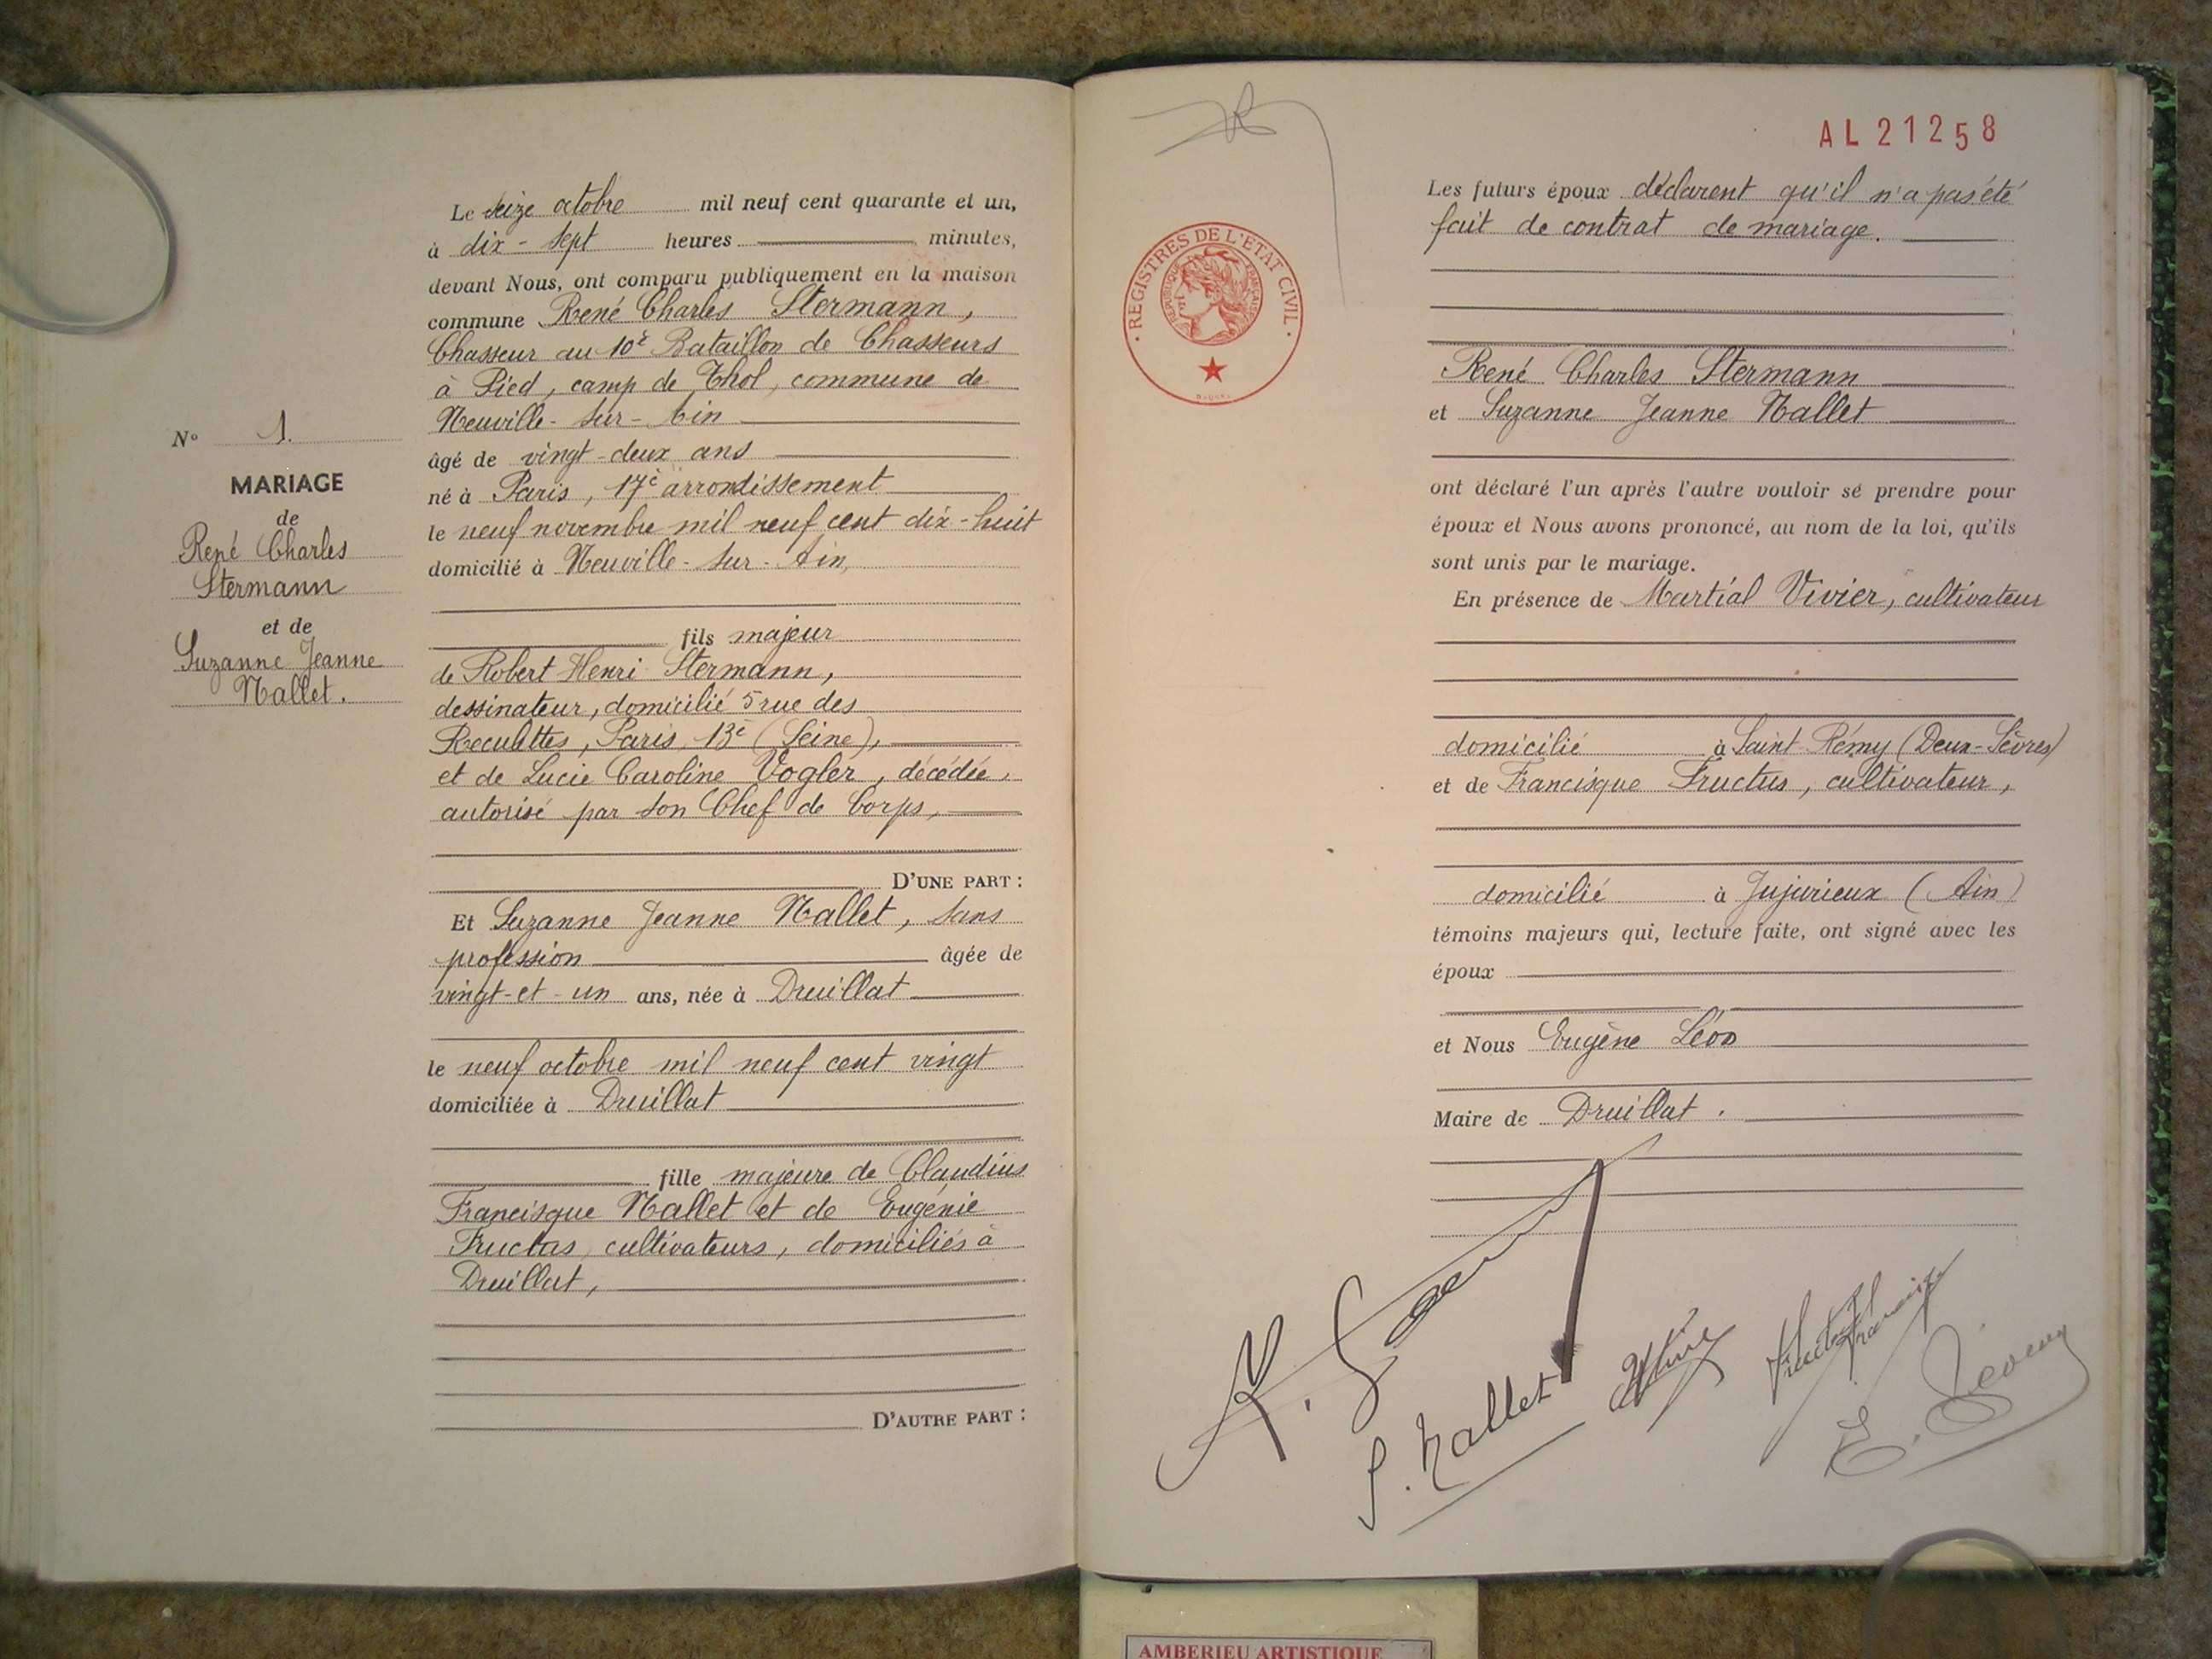 N° 1.
MARIAGE
de
René Charles
Stermann
et de
Suzanne Jeanne
Nallet.
Le seize octobre mil neuf cent quarante et un,
à dix-sept heures minutes,
devant Nous, ont comparu publiquement en la maison
commune René Charles Stermann,
Chasseur au 10e Bataillon de Chasseurs
à Pied, camp de Thol, commune de
Neuville-sur-Ain
âgé de vingt-deux ans
né à Paris, 17è arrondissement
le neuf novembre mil neuf cent dix-huit
domicilié à Neuville-sur-Ain,
fils majeur
de Robert Henri Stermann,
dessinateur, domicilié 5 rue des
Reculettes, Paris 13è (Seine),
et de Lucie Caroline Vogler, décédée,
autorisé par son Chef de Corps,
D'UNE PART :
Et Suzanne Jeanne Nallet, sans
profession âgée de
vingt-et-un ans, née à Druillat
le neuf octobre mil neuf cent vingt
domiciliée à Druillat
fille majeure de Claudius
Francisque Nallet et de Eugénie
Fructus, cultivateurs, domiciliés à
Druillat,
D'AUTRE PART :
AL 21258
REGISTRES DE L'ETAT CIVIL
REPUBLIQUE FRANÇAISE
Les futurs époux déclarent qu'il n'a pas été
fait de contrat de mariage.
René Charles Stermann
et Suzanne Jeanne Nallet
ont déclaré l'un après l'autre vouloir se prendre pour
époux et Nous avons prononcé, au nom de la loi, qu'ils
sont unis par le mariage.
En présence de Martial Vivier, cultivateur
domicilié à Saint-Rémy (Deux-Sèvres)
et de Francisque Fructus, cultivateur,
domicilié à Jujurieux (Ain)
témoins majeurs qui, lecture faite, ont signé avec les
époux
et Nous Eugène Léon
Maire de Druillat.
S. Nallet
AMBERIEU ARTISTIQUE